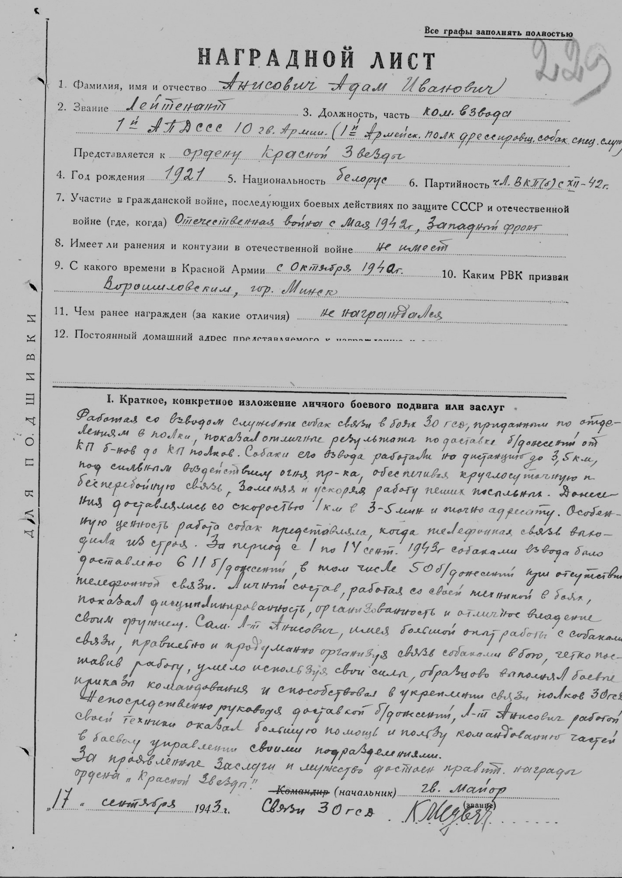 Все графы заполнять полностью
229
НАГРАДНОЙ ЛИСТ
1. Фамилия, имя и отчество Анисович Адам Иванович
2. Звание Лейтенант 3. Должность, часть ком. взвода
1й АПДССС 10 гв. Армии. (1й Армейск. полк дрессировщ. собак спец. служ
Представляется к ордену Красной Звезды
4. Год рождения 1921 5. Национальность белорус 6. Партийность чл. ВКП(б) с XII-42г.
7. Участие в гражданской войне, последующих боевых действиях по защите СССР и отечественной
войне (где, когда) Отечественная война с Мая 1942г, Западный фронт
8. Имеет ли ранения и контузии в отечественной войне не имеет
9. С какого времени в Красной Армии с Октября 1940г. 10. Каким РВК призван
Ворошиловским, гор. Минск
11. Чем ранее награжден (за какие отличия) не награждался
12. Постоянный домашний адрес представляемого к награждению и
ДЛЯ ПОДШИВКИ
I. Краткое, конкретное изложение личного боевого подвига или заслуг
Работая со взводом служебных собак связи в боях 30 гсд, приданном по отде-
лениям в полки, показал отличные результаты по доставке б/донесений от
КП б-нов до КП полков. Собаки его взвода работали на дистанции до 3,5 км,
под сильным воздействием огня пр-ка, обеспечивая круглосуточную и
бесперебойную связь, заменяя и ускоряя работу пеших посыльных. Донесе-
ния доставлялись со скоростью 1 км в 3-5 мин и точно адресату. Особен-
ную ценность работа собак представляла, когда телефонная связь выхо-
дила из строя. За период с 1 по 14 сент. 1943г собаками взвода было
доставлено 611 б/донесений, в том числе 50 б/донесений при отсутствии
телефонной связи. Личный состав, работая со своей техникой в боях,
показал дисциплинированность, организованность и отличное владение
своим оружием. Сам Л-т Анисович, имея большой опыт работы с собаками
связи, правильно и продуманно организуя связь собаками в бою, четко пос-
тавив работу, умело используя свои силы, образцово выполнял боевые
приказы командования и способствовал в укреплении связи полков 30 гсд.
Непосредственно руководя доставкой б/донесений, Л-т Анисович работой
своей техники оказал большую помощь и пользу командованию частей
в боевом управлении своими подразделениями.
За проявленные заслуги и мужество достоен правит. награды
ордена „Красной Звезды"
Командир (начальник) гв. майор
„17" сентября 1943г. Связи 30 гсд (звание)